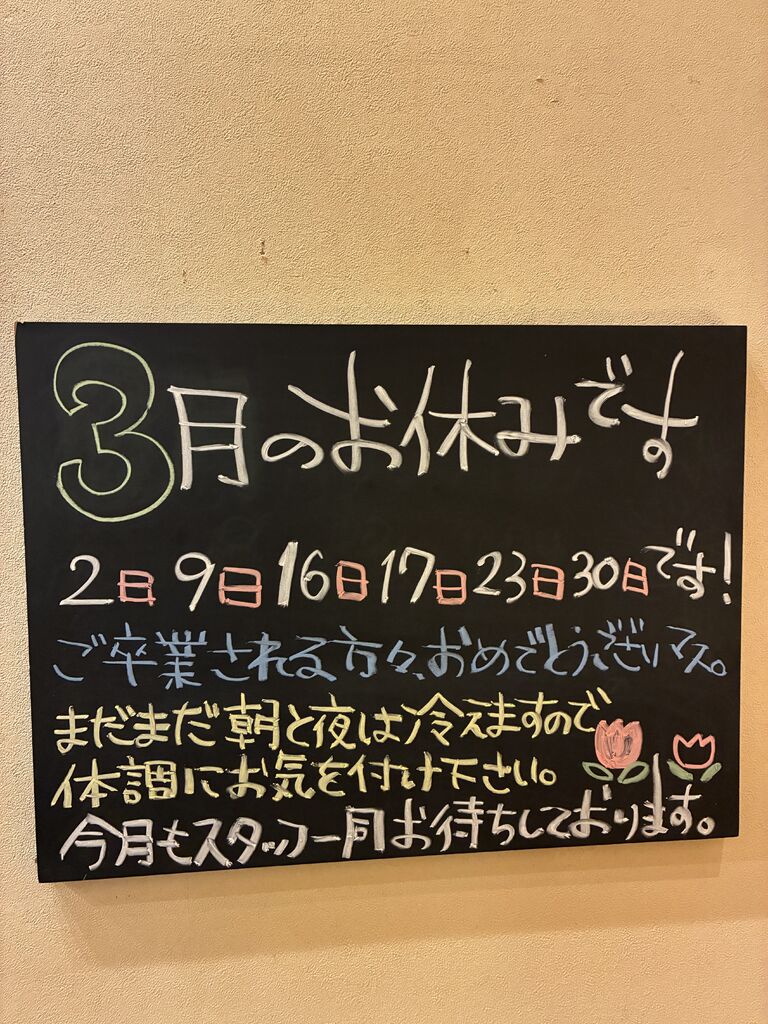 3月のお休みです
2日 9日 16日 17日 23日 30日 です!
ご卒業される方々、おめでとうございマス。
まだまだ朝と夜は冷えますので
体調にお気を付け下さい。
今月もスタッフ一同お待ちしております。